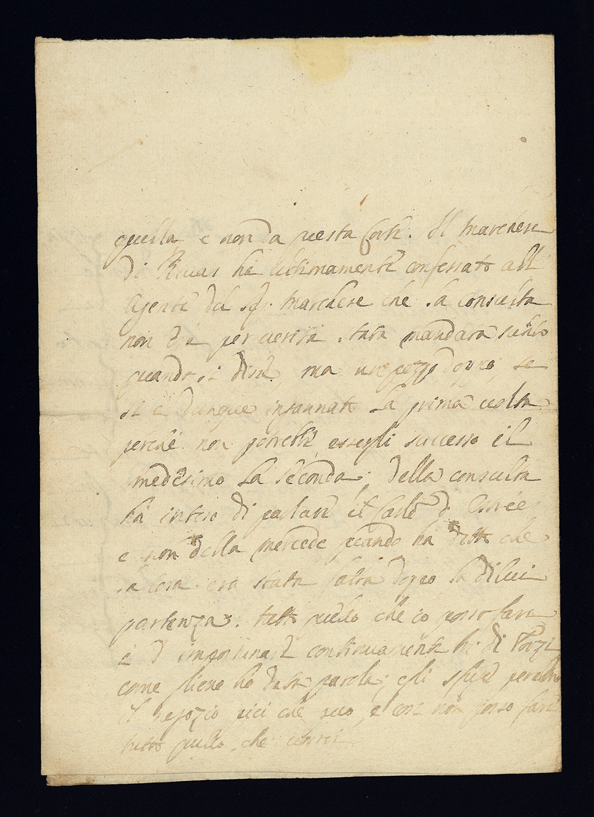 quella e non a questa Corte. Il Marchese
di Rivas ha ultimamente confessato all'
Agente del Sigr. Marchese che la consulta
non è per verità stata mandata subito
quando si disse, ma un pezzo dopo se
si è dunque ingannato la prima volta
perché non potrebbe essergli successo il
medesimo la seconda; della consulta
ha inteso di parlare il Carlo
e non della mercede quando ha detto che
la cosa era stata fatta dopo la di lui
partenza. tutto quello che io posso fare
è d'importunare continuamente
come gliene ho data parola; egli
il negozio e io non posso fare
tutto quello che vorrei.